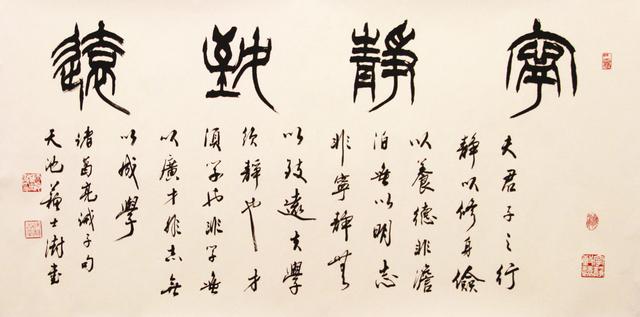 寧靜致遠
夫君子之行
静以修身儉
以養德非澹
泊無以明志
非寧静無
以致遠夫學
須静也才
須學也非學無
以廣才非志無
以成學
諸葛亮誡子句
天池蘇士澍書